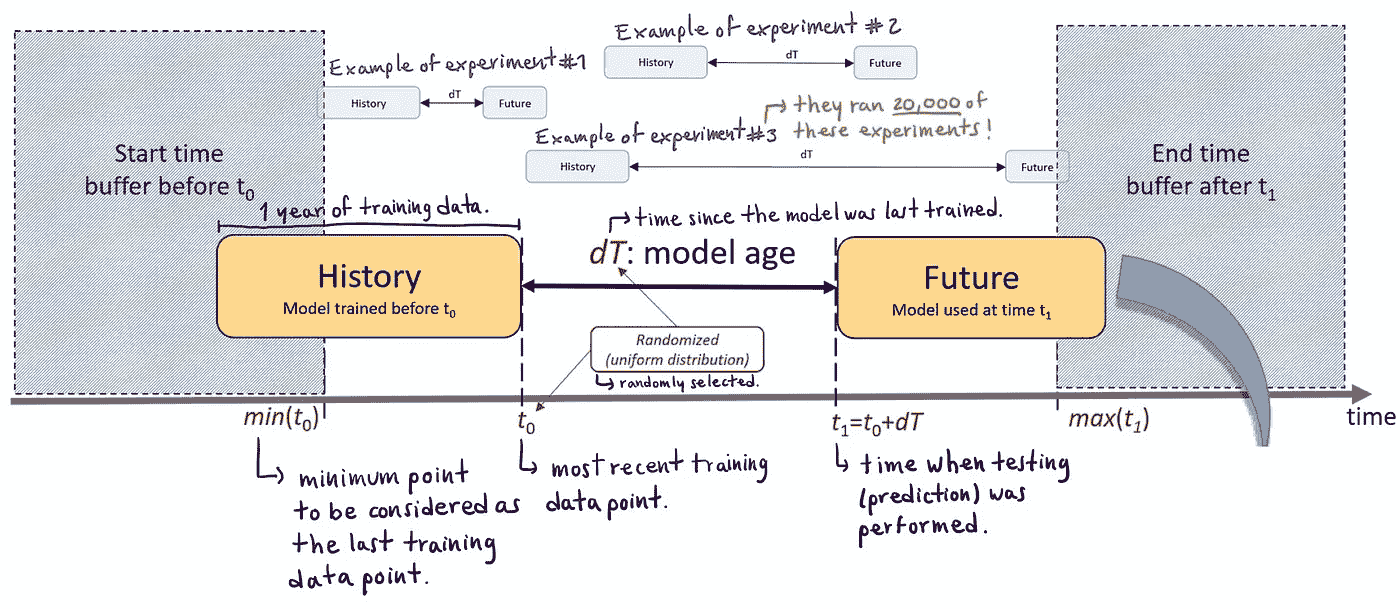 Example of experiment #2
History
dT
Future
Example of experiment #1
History
dT
Future
they ran 20,000 of
these experiments!
Example of experiment #3
History
dT
Future
Start time
buffer before t₀
End time
buffer after t₁
1 year of training data.
time since the model was last trained.
dT: model age
History
Model trained before t₀
Future
Model used at time t₁
Randomized
(uniform distribution)
randomly selected.
min(t₀)
t₀
t₁=t₀+dT
max(t₁)
time
minimum point
to be considered as
the last training
data point.
most recent training
data point.
time when testing
(prediction) was
performed.